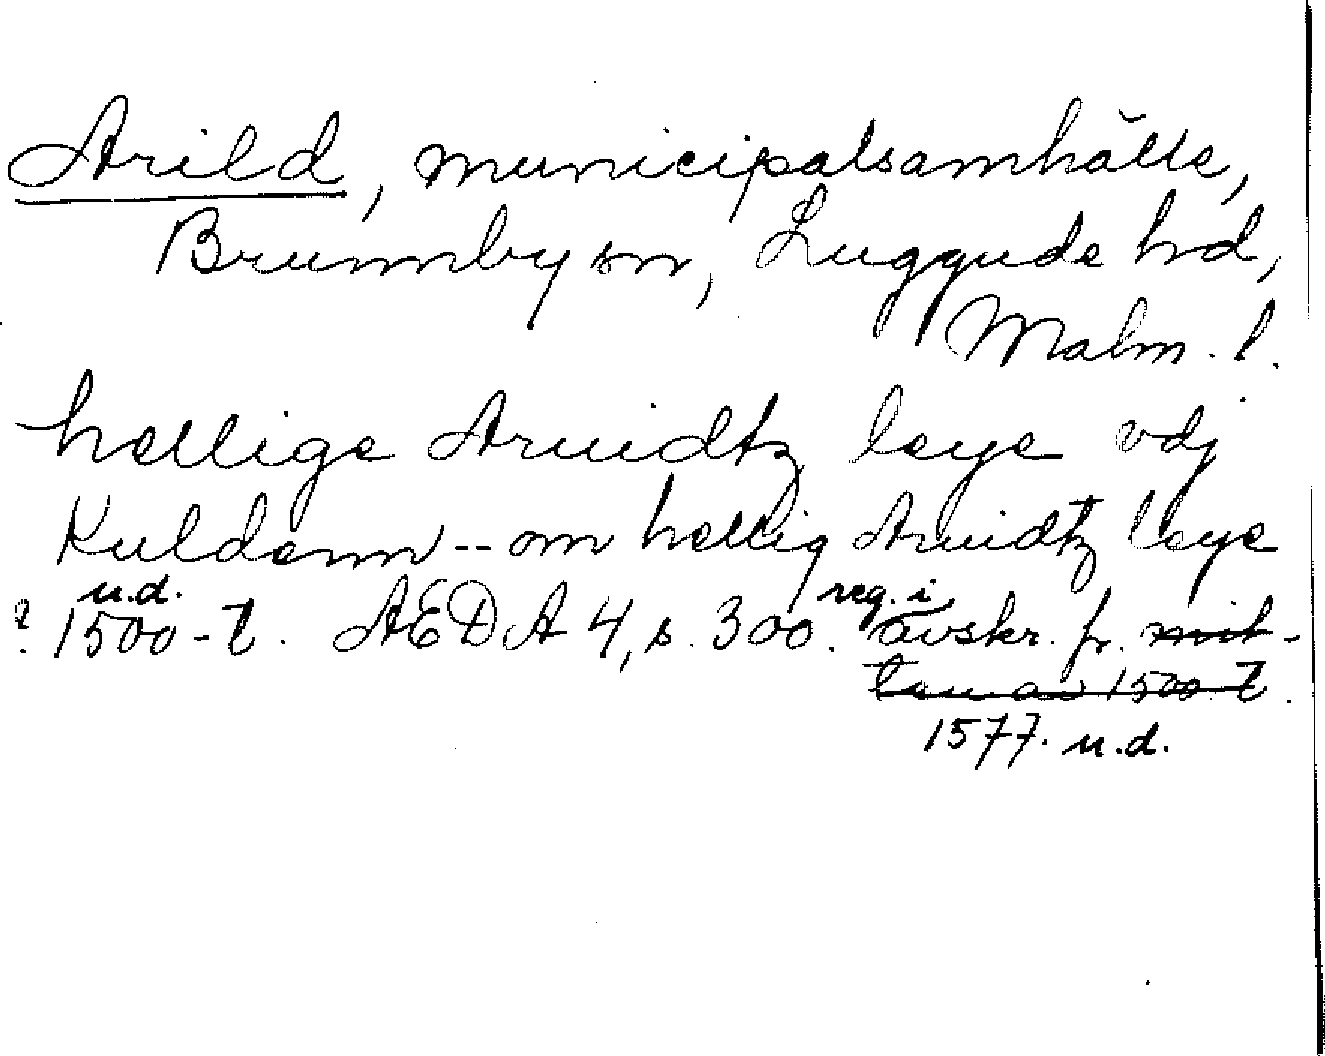 Arild, municipalsamhälle,
Brunnby sn, Luggude hd,
Malm. l.
hellige Aruidtz leye vdj
Kuldenn -- om hellig Aruidtz leye
u.d. reg. i
? 1500-t. AEDA 4, s. 300. avskr. fr. mit-
ten av 1500-t.
1577. u.d.